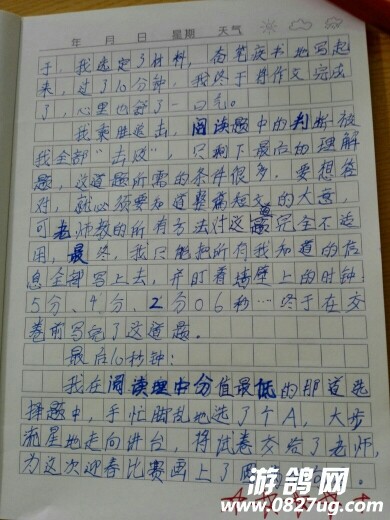 年 月 日 星期 天气
于我选定了材料，奋笔疾书地写起
来，过了10分钟，我终于将作文完成
了，心里也舒了一口气。
我乘胜追击，阅读题中的判断被
我全部“击毁”，只剩下最后的理解
题，这道题所需的条件很多，要想答
对，就必须要知道整篇短文的大意，
可老师教的所有方法对这道题完全不适
用，最终，我只能把所有我知道的信
息全部写上去，并盯着墙壁上的时钟
5分、4分、2分06秒…终于在交
卷前写完了这道题。
最后10秒钟：
我在阅读理中分值最低的那道选
择题中，手忙脚乱地选了个A，大步
流星地走向讲台，将试卷交给了老师，
为这次迎春比赛画上了
游鸽网
www.0827ug.com